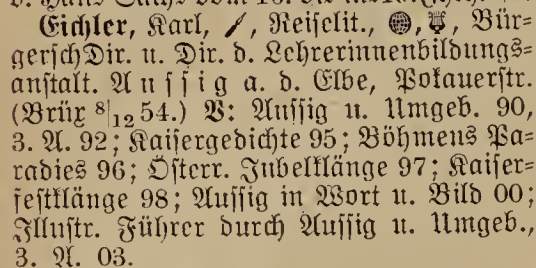 Eichler, Karl, Reiselit., Bür-
gerschDir. u. Dir. d. Lehrerinnenbildungs-
anstalt. Aussig a. d. Elbe, Pokauerstr.
(Brüx 8|12 54.) V: Aussig u. Umgeb. 90,
3. A. 92; Kaisergedichte 95; Böhmens Pa-
radies 96; Österr. Jubelklänge 97; Kaiser-
festklänge 98; Aussig in Wort u. Bild 00;
Illustr. Führer durch Aussig u. Umgeb.,
3. A. 03.